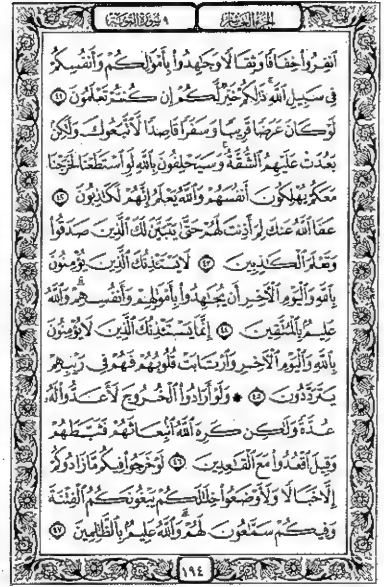 ٩ سورة التوبة
الجزء العاشر
ٱنفِرُوا۟ خِفَافًا وَثِقَالًا وَجَٰهِدُوا۟ بِأَمْوَٰلِكُمْ وَأَنفُسِكُمْ
فِى سَبِيلِ ٱللَّهِ ذَٰلِكُمْ خَيْرٌ لَّكُمْ إِن كُنتُمْ تَعْلَمُونَ ٤١
لَوْ كَانَ عَرَضًا قَرِيبًا وَسَفَرًا قَاصِدًا لَّٱتَّبَعُوكَ وَلَٰكِنۢ
بَعُدَتْ عَلَيْهِمُ ٱلشُّقَّةُ وَسَيَحْلِفُونَ بِٱللَّهِ لَوِ ٱسْتَطَعْنَا لَخَرَجْنَا
مَعَكُمْ يُهْلِكُونَ أَنفُسَهُمْ وَٱللَّهُ يَعْلَمُ إِنَّهُمْ لَكَٰذِبُونَ ٤٢
عَفَا ٱللَّهُ عَنكَ لِمَ أَذِنتَ لَهُمْ حَتَّىٰ يَتَبَيَّنَ لَكَ ٱلَّذِينَ صَدَقُوا۟
وَتَعْلَمَ ٱلْكَٰذِبِينَ ٤٣ لَا يَسْتَـْٔذِنُكَ ٱلَّذِينَ يُؤْمِنُونَ
بِٱللَّهِ وَٱلْيَوْمِ ٱلْـَٔاخِرِ أَن يُجَٰهِدُوا۟ بِأَمْوَٰلِهِمْ وَأَنفُسِهِمْ وَٱللَّهُ
عَلِيمٌۢ بِٱلْمُتَّقِينَ ٤٤ إِنَّمَا يَسْتَـْٔذِنُكَ ٱلَّذِينَ لَا يُؤْمِنُونَ
بِٱللَّهِ وَٱلْيَوْمِ ٱلْـَٔاخِرِ وَٱرْتَابَتْ قُلُوبُهُمْ فَهُمْ فِى رَيْبِهِمْ
يَتَرَدَّدُونَ ٤٥ وَلَوْ أَرَادُوا۟ ٱلْخُرُوجَ لَأَعَدُّوا۟ لَهُۥ
عُدَّةً وَلَٰكِن كَرِهَ ٱللَّهُ ٱنۢبِعَاثَهُمْ فَثَبَّطَهُمْ
وَقِيلَ ٱقْعُدُوا۟ مَعَ ٱلْقَٰعِدِينَ ٤٦ لَوْ خَرَجُوا۟ فِيكُم مَّا زَادُوكُمْ
إِلَّا خَبَالًا وَلَأَوْضَعُوا۟ خِلَٰلَكُمْ يَبْغُونَكُمُ ٱلْفِتْنَةَ
وَفِيكُمْ سَمَّٰعُونَ لَهُمْ وَٱللَّهُ عَلِيمٌۢ بِٱلظَّٰلِمِينَ ٤٧
١٩٤